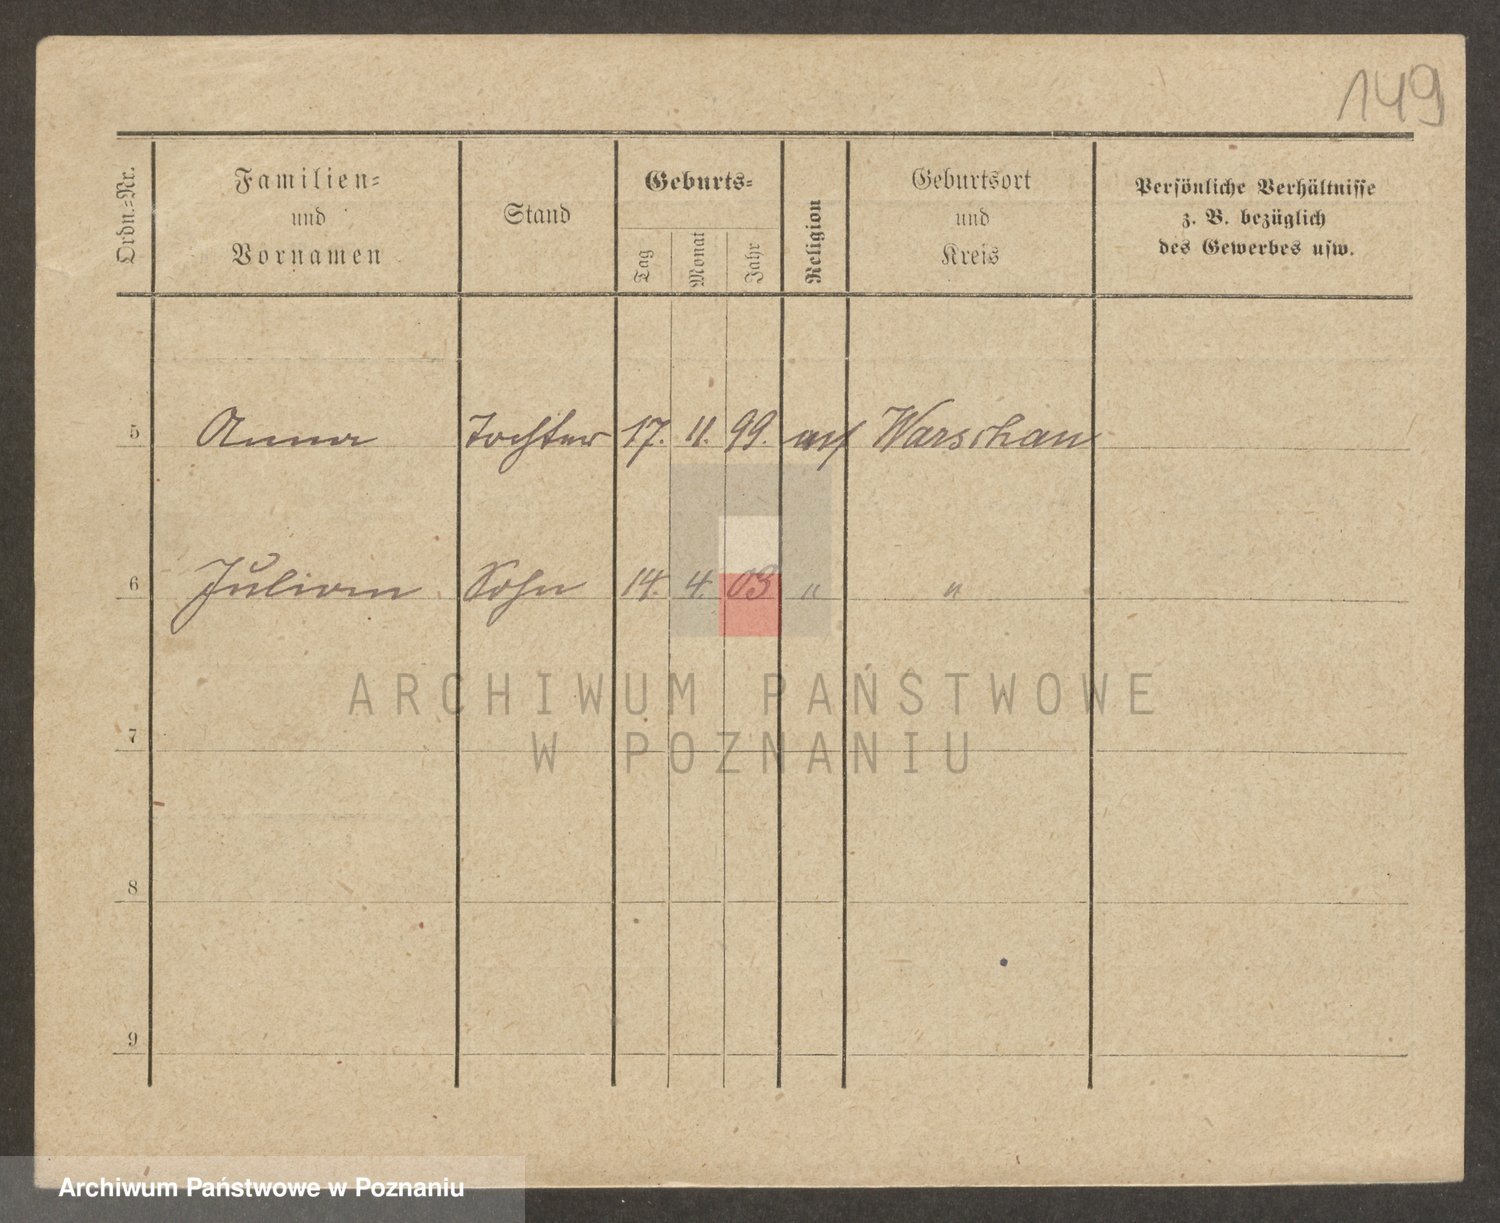 149
Ordn.-Nr.
Familien-
und
Vornamen
Stand
Geburts-
Tag
Monat
Jahr
Religion
Geburtsort
und
Kreis
Persönliche Verhältnisse
z. B. bezüglich
des Gewerbes usw.
5 Anna Tochter 17. 11. 99. Warschau
6 Julian Sohn 14. 4. 03 " "
ARCHIWUM PAŃSTWOWE
W POZNANIU
7
8
9
Archiwum Państwowe w Poznaniu